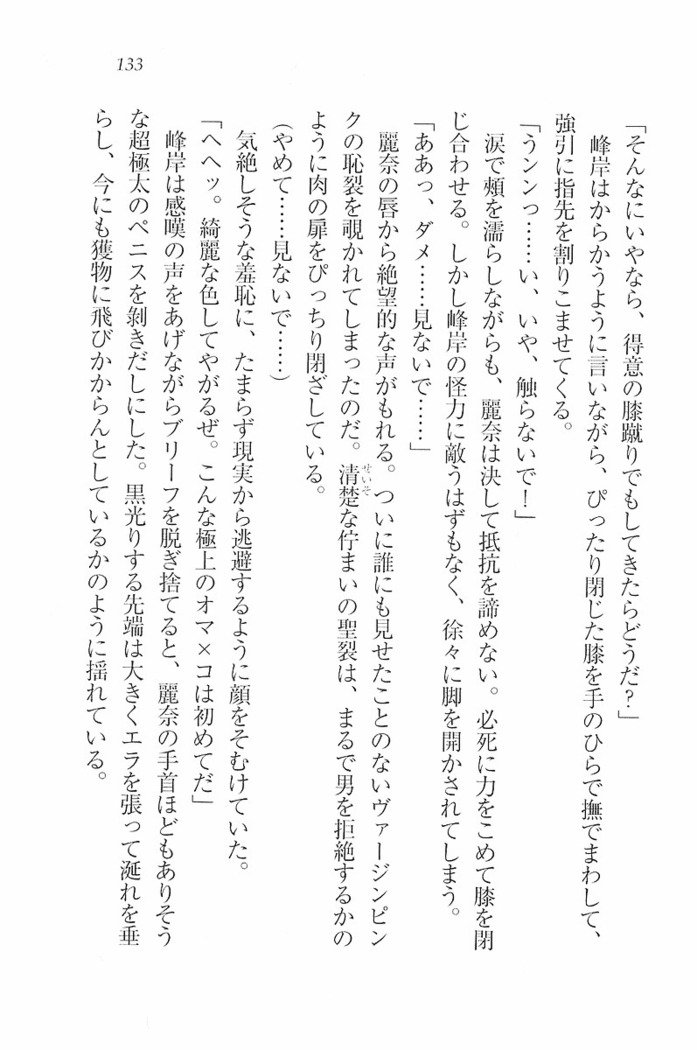 133
「そんなにいやなら、得意の膝蹴りでもしてきたらどうだ?」
峰岸はからかうように言いながら、ぴったり閉じた膝を手のひらで撫でまわして、
強引に指先を割りこませてくる。
「うンンっ……い、いや、触らないで!」
涙で頰を濡らしながらも、麗奈は決して抵抗を諦めない。必死に力をこめて膝を閉
じ合わせる。しかし峰岸の怪力に敵うはずもなく、徐々に脚を開かされてしまう。
「ああっ、ダメ……見ないで……」
麗奈の唇から絶望的な声がもれる。ついに誰にも見せたことのないヴァージンピン
クの恥裂を覗かれてしまったのだ。清楚せいそな佇まいの聖裂は、まるで男を拒絶するかの
ように肉の扉をぴっちり閉ざしている。
(やめて……見ないで……)
気絶しそうな羞恥に、たまらず現実から逃避するように顔をそむけていた。
「へヘッ。綺麗な色してやがるぜ。こんな極上のオマ×コは初めてだ」
峰岸は感嘆の声をあげながらブリーフを脱ぎ捨てると、麗奈の手首ほどもありそう
な超極太のペニスを剝きだしにした。黒光りする先端は大きくエラを張って涎れを垂
らし、今にも獲物に飛びかからんとしているかのように揺れている。